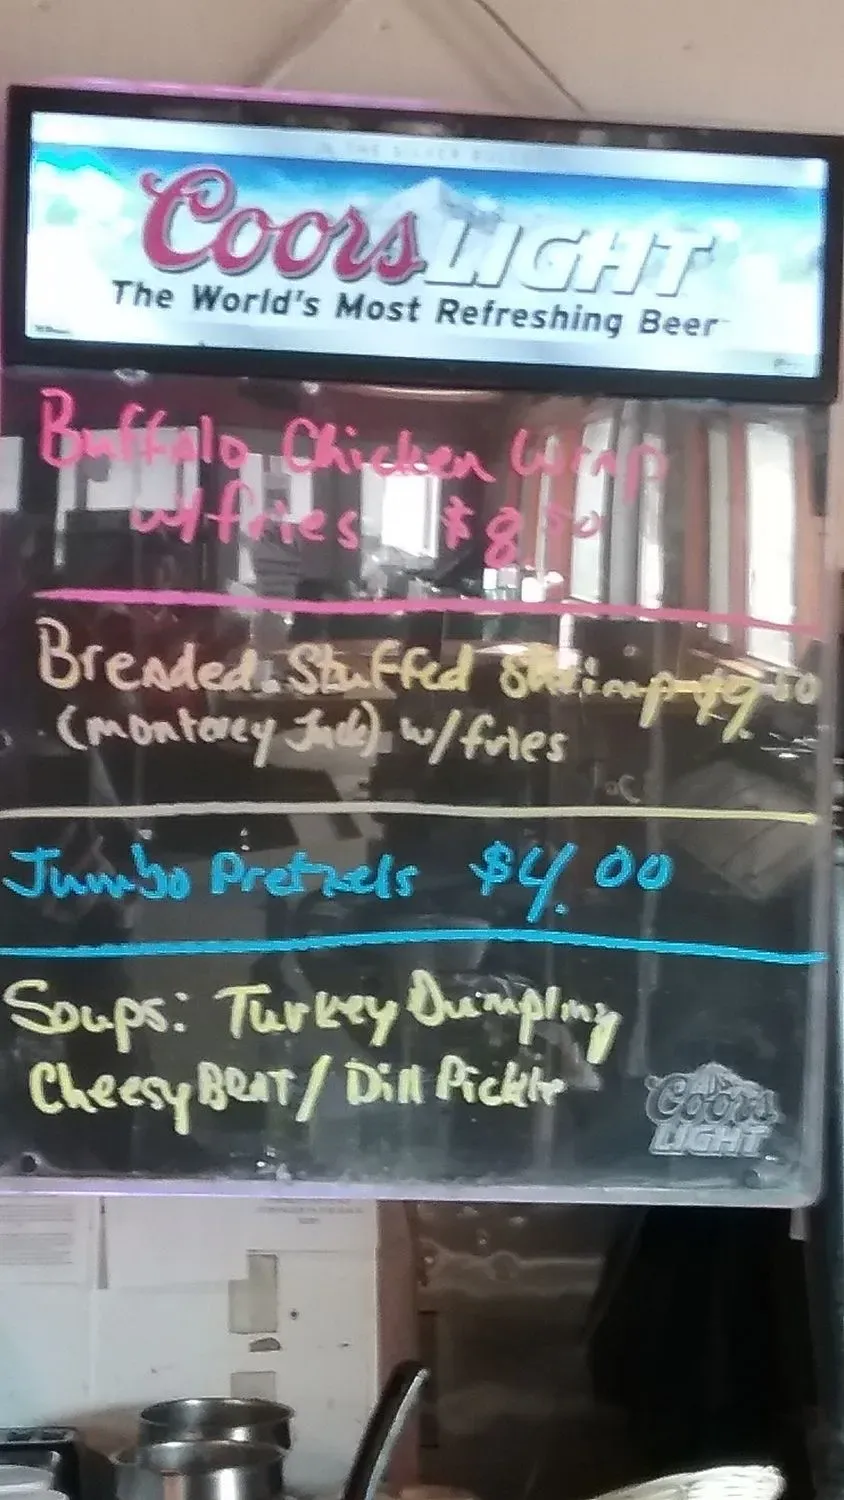 THE SILVER BULLET
Coors LIGHT
The World's Most Refreshing Beer
Buffalo Chicken Wrap
w/fries $8.50
Breaded Stuffed Shrimp $9.50
(monterey Jack) w/fries
Jumbo Pretzels $4.00
Soups: Turkey Dumpling
Cheesy Brat / Dill Pickle
Coors
LIGHT